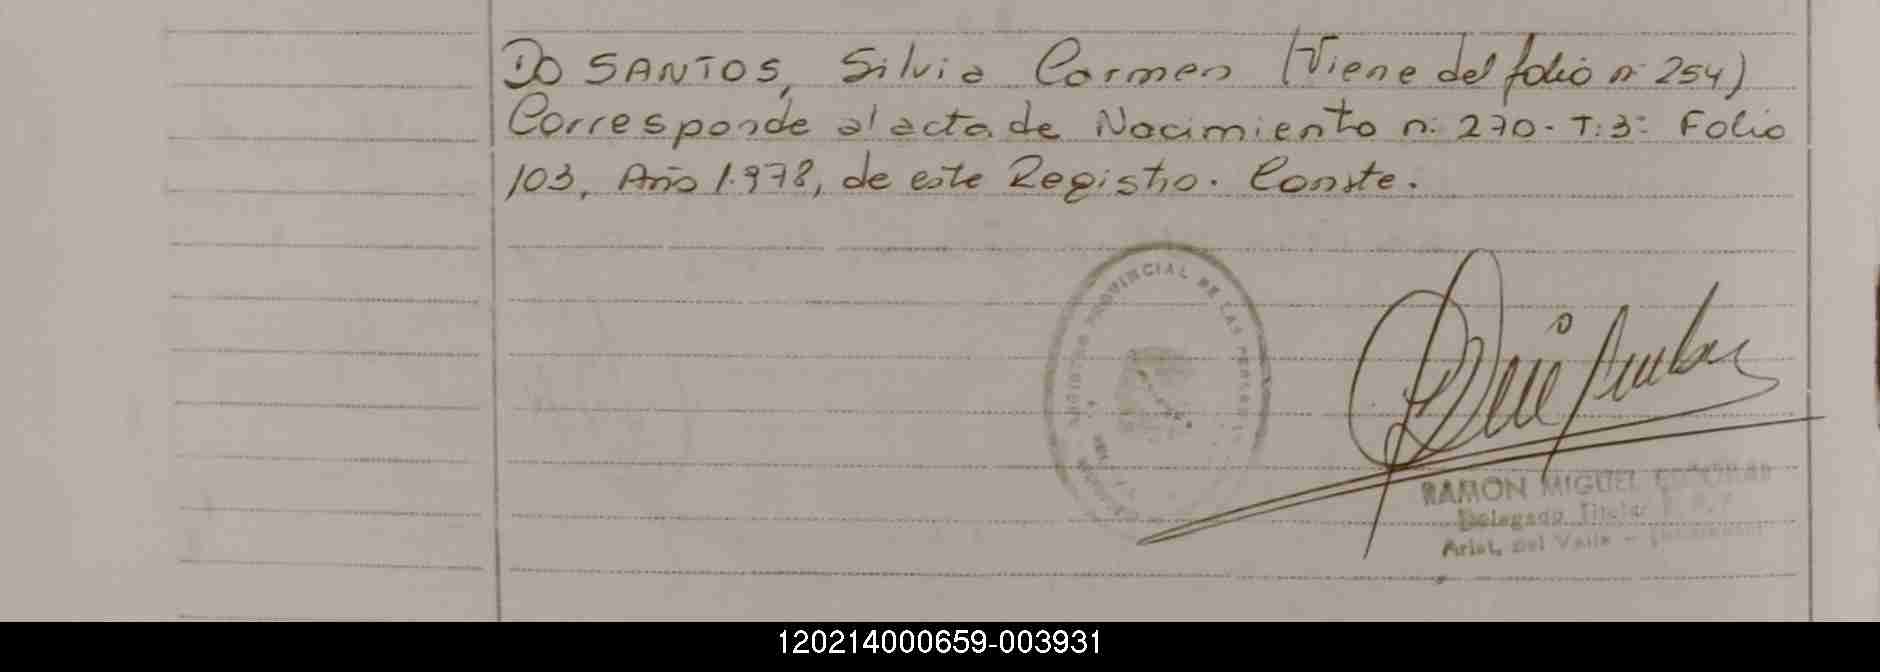 DO SANTOS, Silvia Carmen (Viene del folio n: 254)
Corresponde al acta de Nacimiento n: 270- T: 3: Folio
103, Año 1.978, de este Registro. Conste.
REGISTRO PROVINCIAL DE LAS PERSONAS
RAMON MIGUEL
Delegado Titular
Arist. del Valle -
120214000659-003931